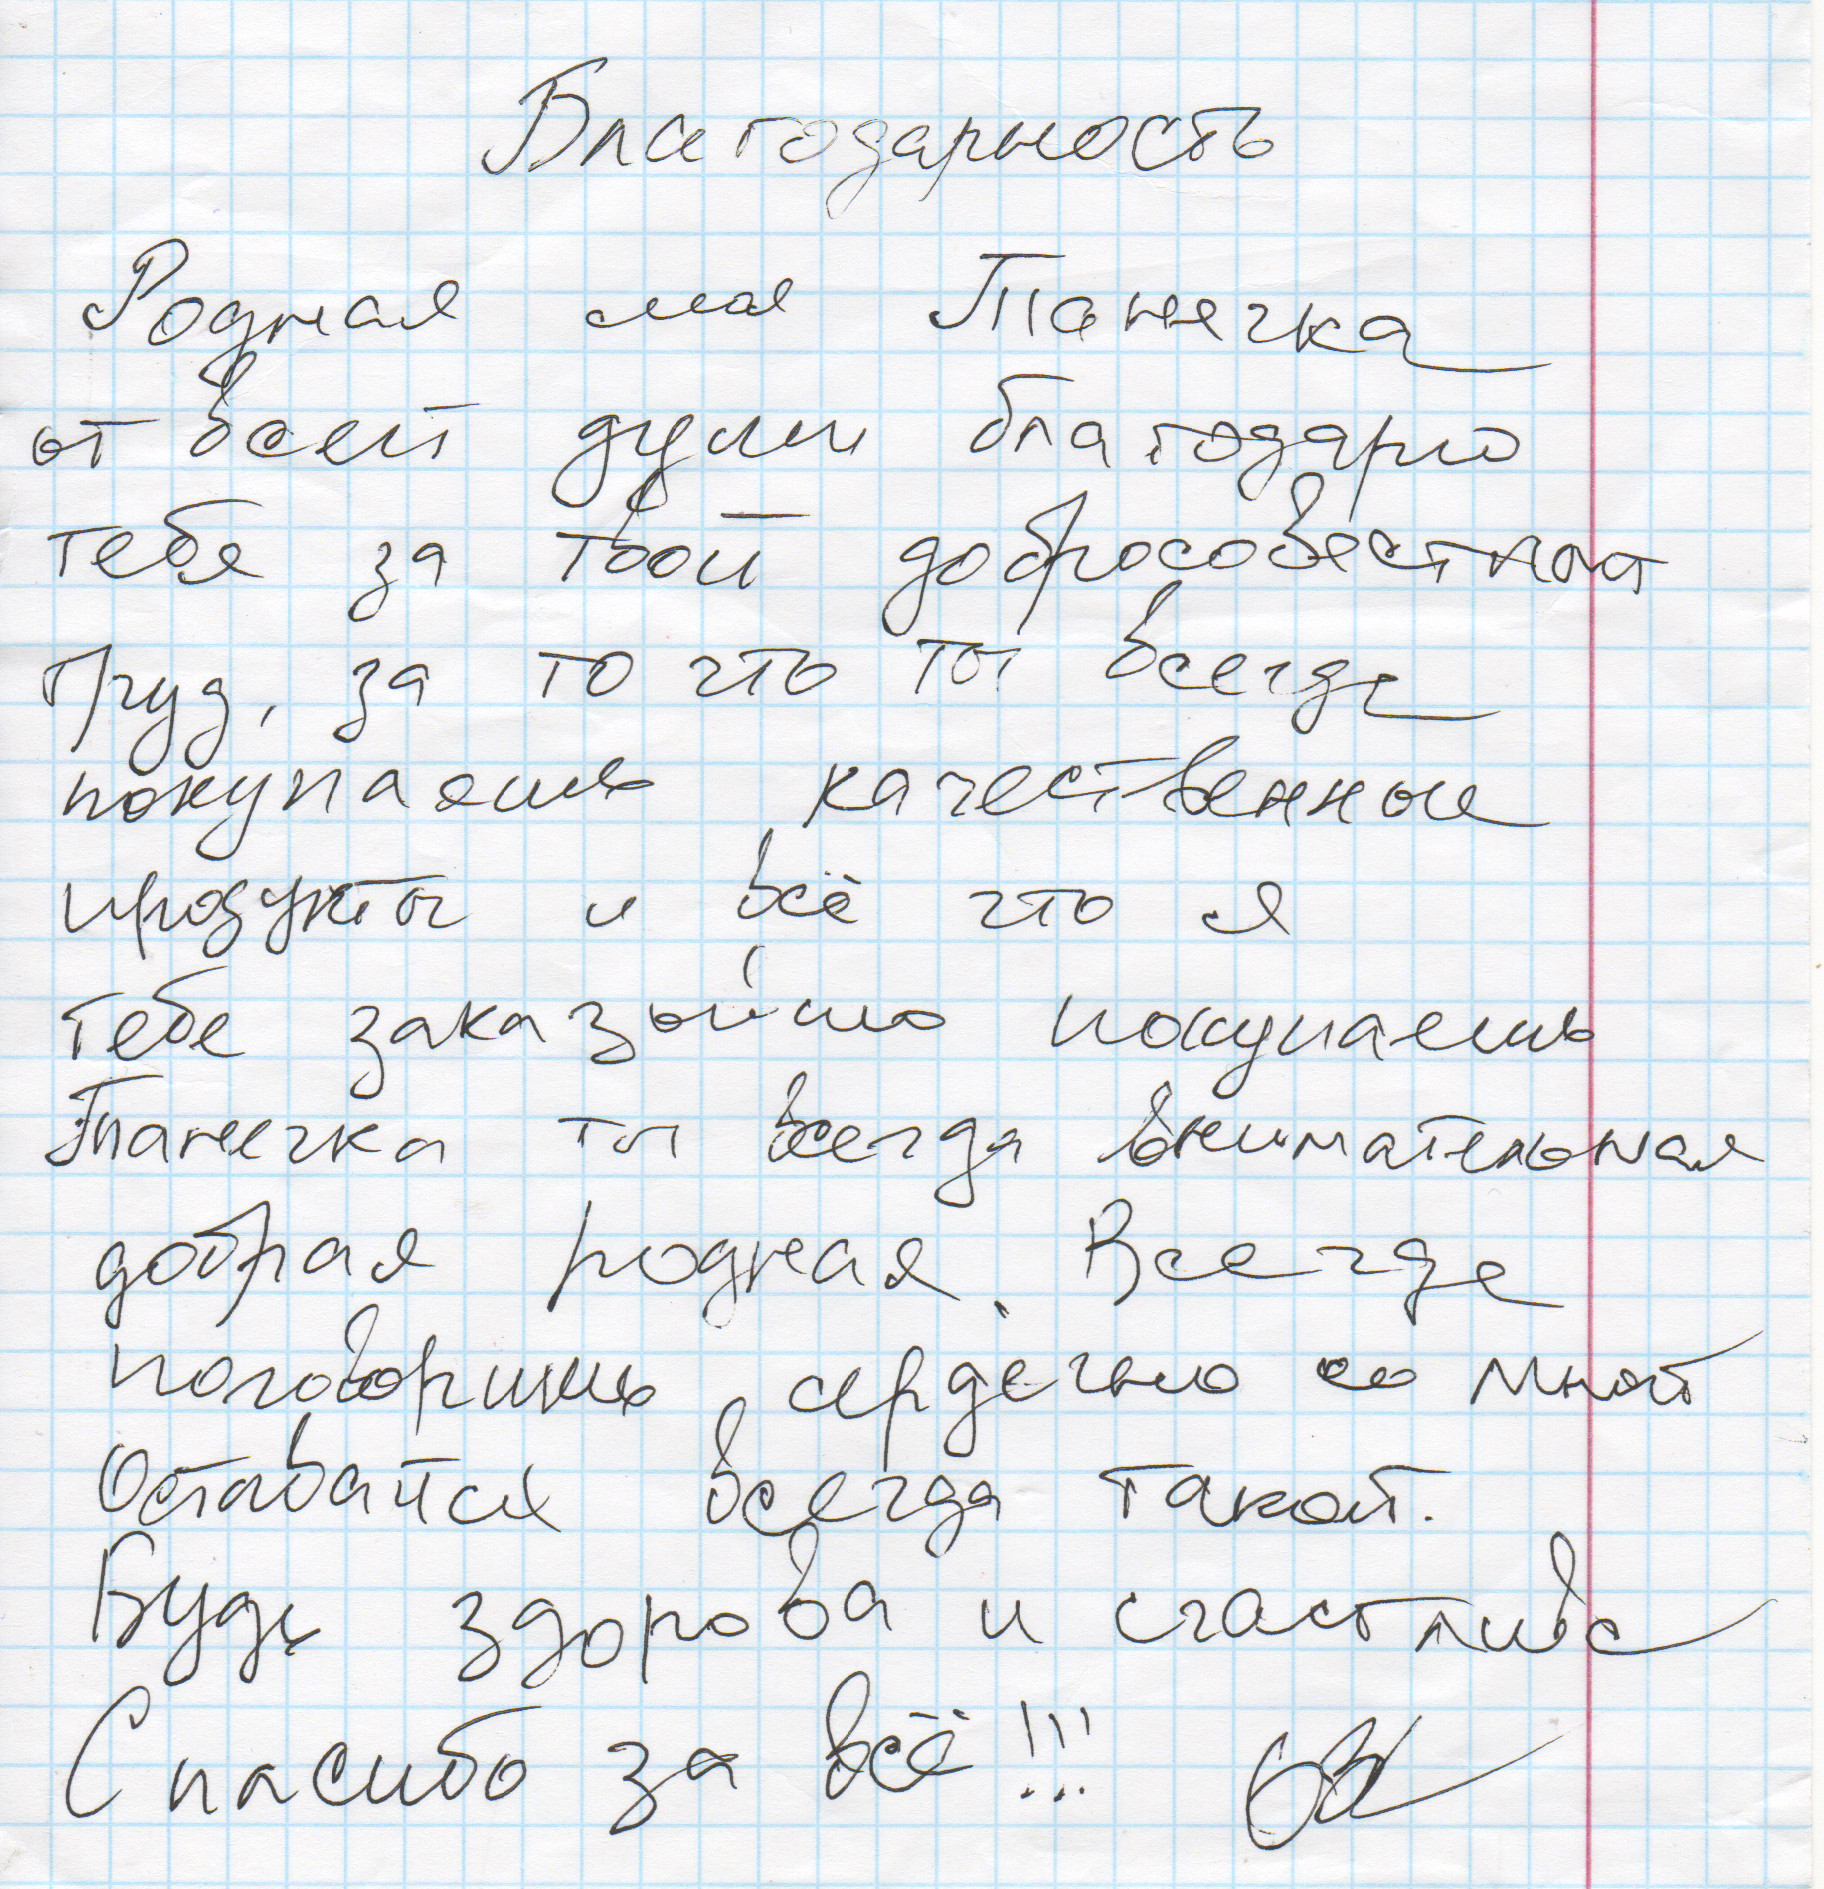 Благодарность
Родная моя Танечка
от всей души благодарю
тебя за твой добросовестный
труд, за то что ты всегда
покупаешь качественные
продукты и всё что я
тебе заказываю покупаешь
Танечка ты всегда внимательная
добрая родная. Всегда
поговоришь, сердечно со мной
Оставайся всегда такой.
Будь здорова и счастлива
Спасибо за всё!!!